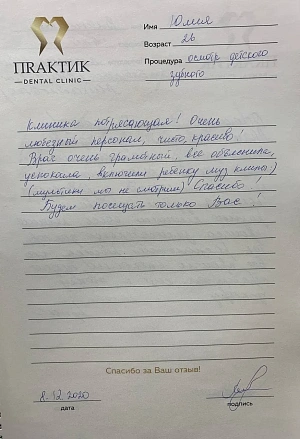 ПРАКТИК
DENTAL CLINIC
Имя Юлия
Возраст 26
Процедура осмотр детского
зубного
Клиника потрясающая! Очень
любезный персонал, чисто, красиво!
Врач очень грамотный, все объяснила,
успокоила включили ребенку муз клипы:)
(мультики мы не смотрим) Спасибо!
Будем посещать только Вас!
Спасибо за Ваш отзыв!
8.12.2020
дата
подпись